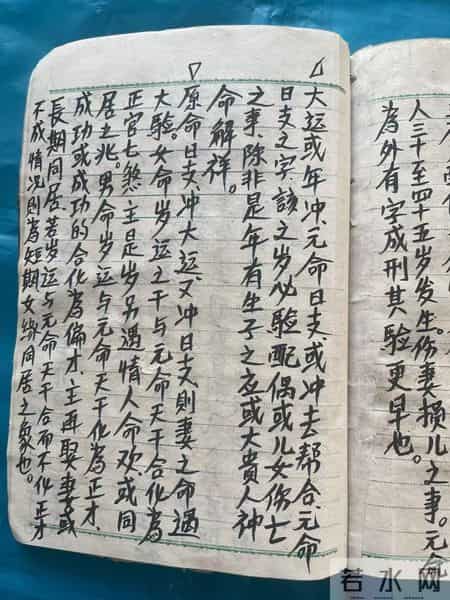 人三十至四十五岁发生。伤妻损儿之事。元命
为外有字成刑其验更早也。
大运或年冲元命日支或冲去帮合元命
日支之字該之岁必验配偶或儿女伤亡
之事。除非是年有生子之应或大貴人神
命解祥。
原命日支冲大运又冲日支則妻之命遇
大验。女命岁运之干与元命天干合化為
正官七煞主是岁另遇情人命欢或同
居之兆。男命岁运与元命天干化為正才、
成功或成功的合化為偏才主再娶妻或
長期同居、若岁运与元命天干合而不化正才
不成情况則為短期女緣同居之象也。
若水网